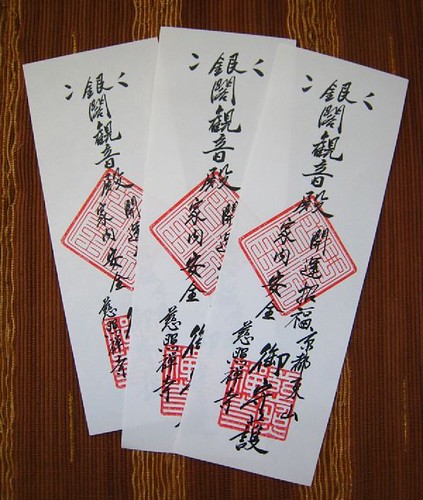 銀閣観音殿
開運招福
家内安全
京都東山
御守護
慈照禅寺
銀閣観音殿
開運
家内安全
慈照禅寺
銀閣観音殿
開運
家内安全
慈照禅寺